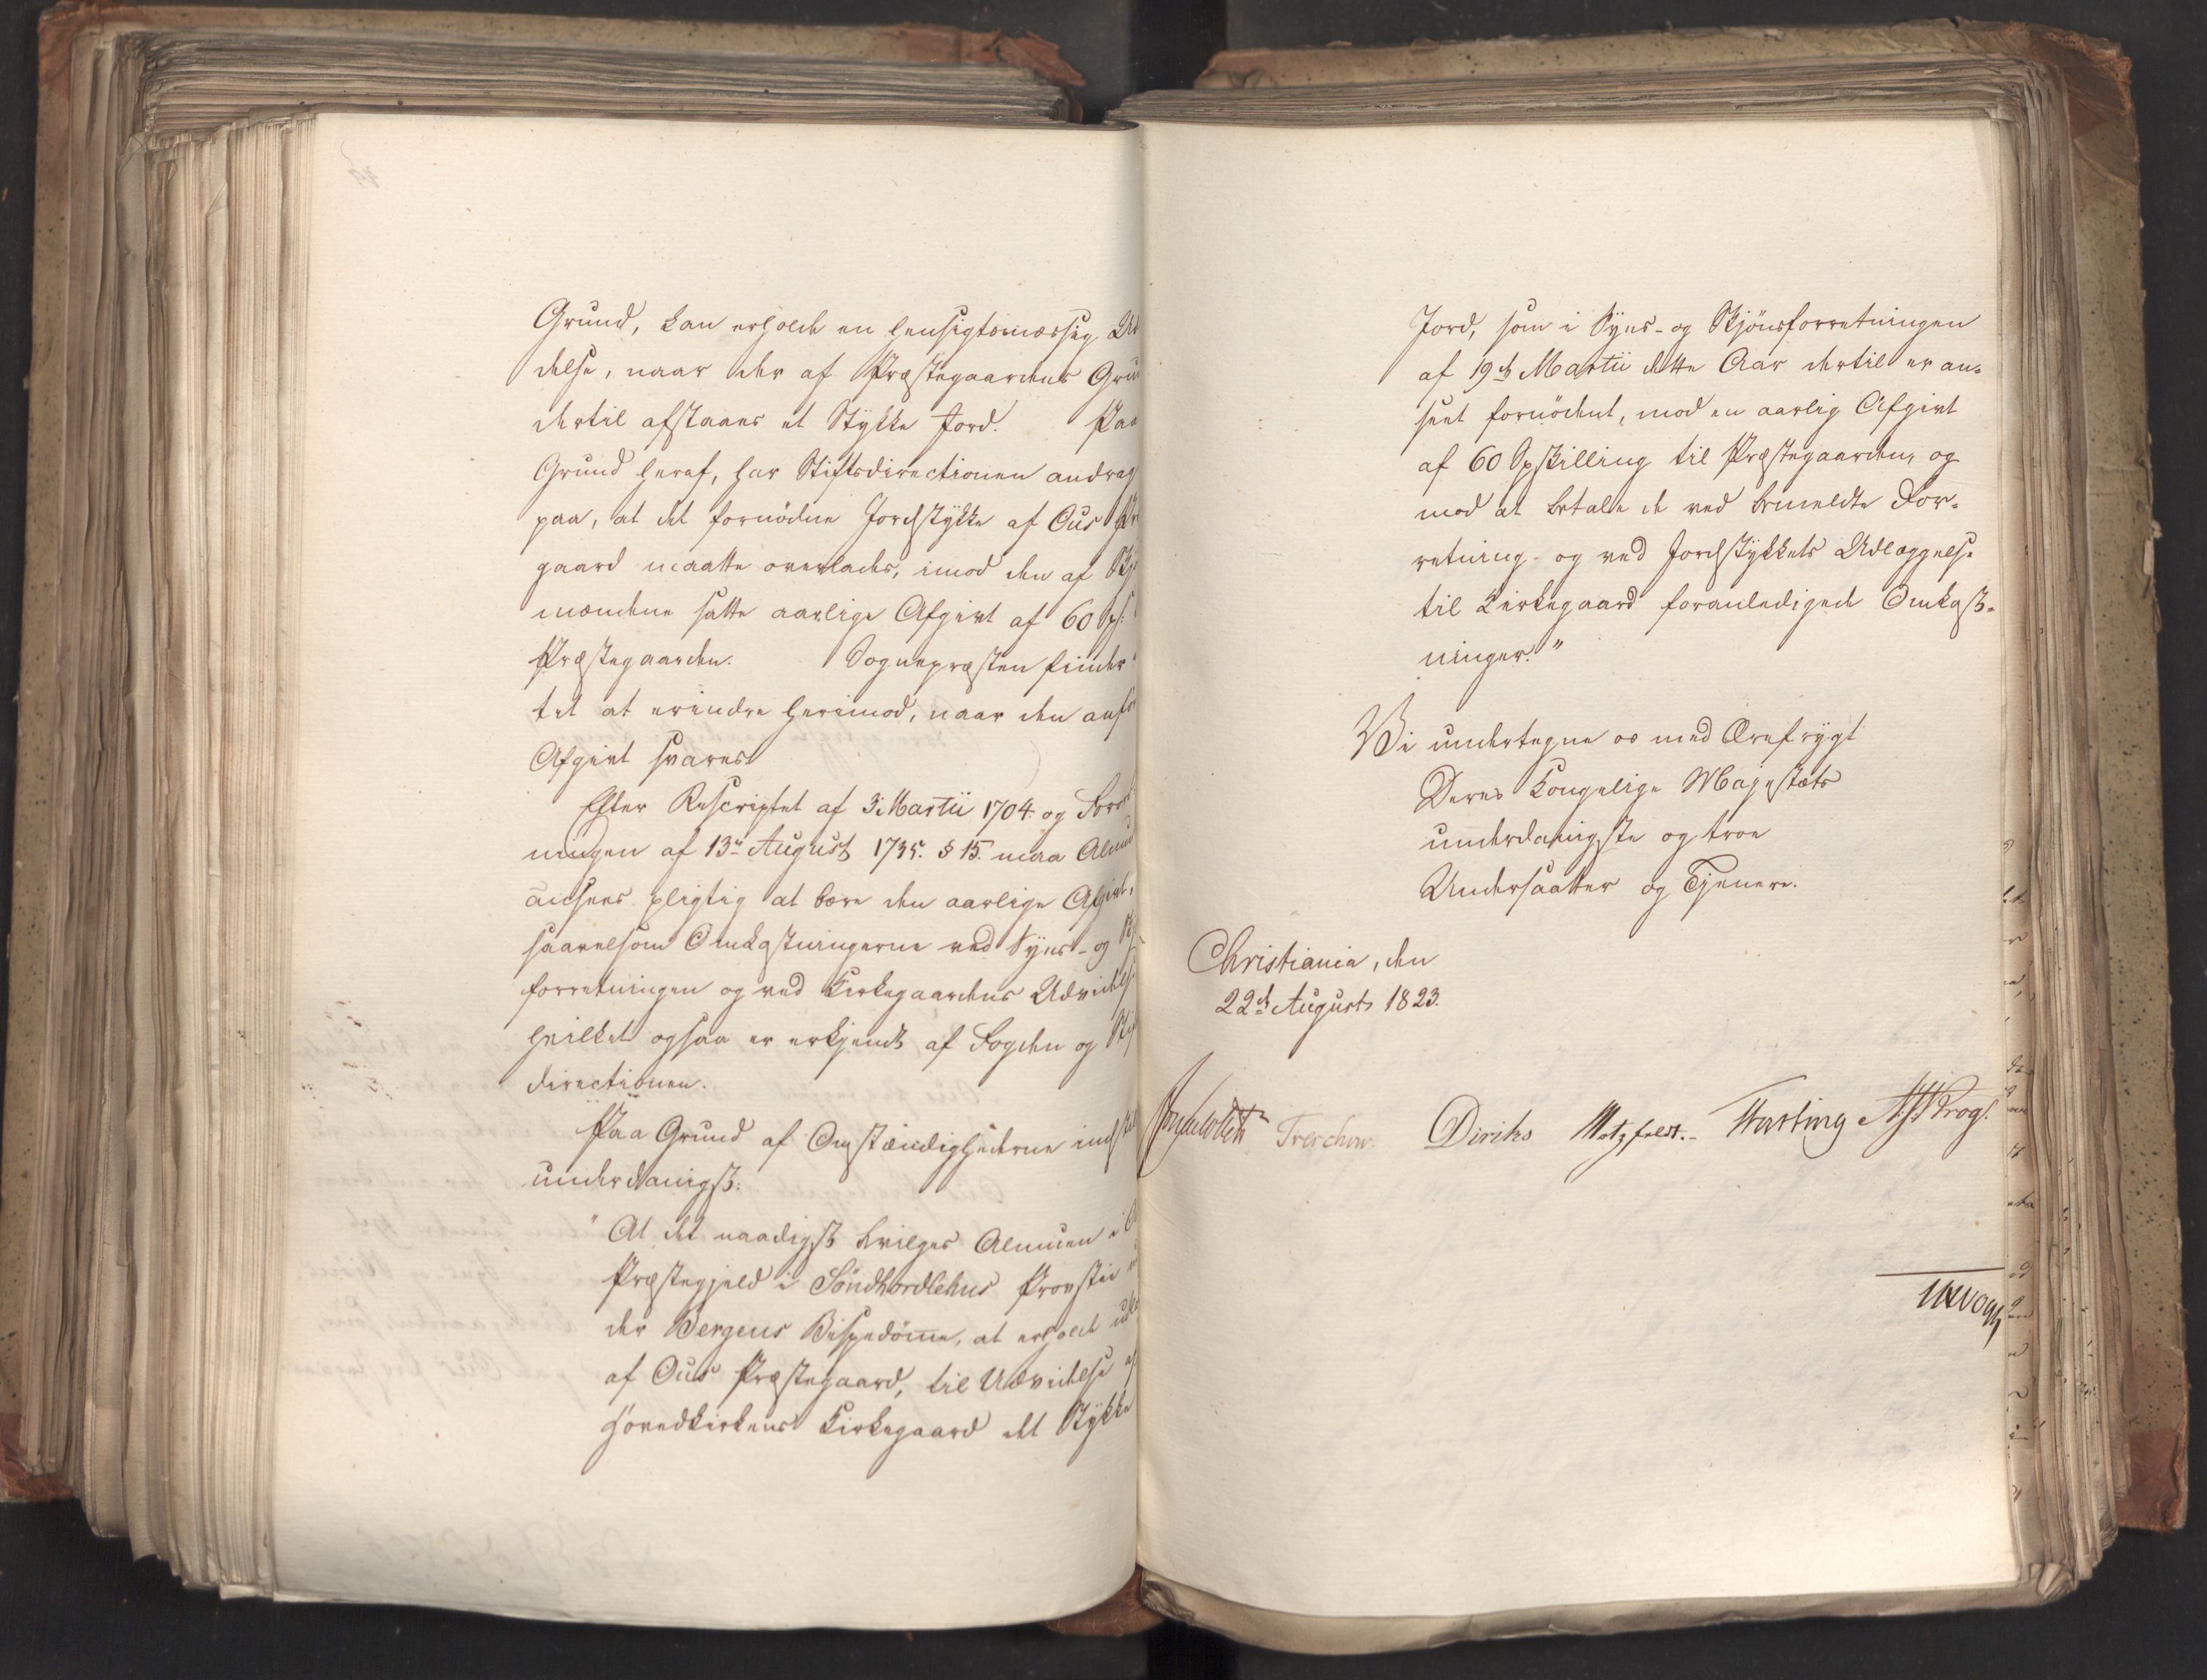 Grund, kan erholde en hensigtsmæssig Ud
delse, naar der af Præstegaardens Gru
dertil afstaaes et Stykke Jord. Paa
Grund heraf, har Stiftsdirectionen andrag
paa, at det fornödne Jordstykke af Ous Præ
gaard maatte overlades, imod den af Skj
mændene satte aarlige Afgivt af 60 Sps:
Præstegaarden. Sognepræsten finder
tet at erindre herimod, naar den anfö
Afgivt svares
Efter Rescriptet af 3 Martii 1704. og Forord
ningen af 13de August 1735. § 15. maa Almu
ansees pligtig at bære den aarlige Afgivt,
saavelsom Omkostningerne ved Syns- og Skj
forretningen og ved Kirkegaardens Udvidelse
hvilket ogsaa er erkjendt af Fogden og Stif
directionen.
Paa Grund af Omstændighederne indstil
underdanigst:
"At det naadigst bevilges Almuen i O
Præstegjeld i Söndhordlehns Provstie
der Bergens Bispedömme, at erholde udl
af Ous Præstegaard, til Udvidelse af
Hovedkirkens Kirkegaard det Stykke
Jord, som i Syns- og Skjönsforretningen
af 19de Martii dette Aar dertil er an-
seet fornödent, mod en aarlig Afgivt
af 60 Spskilling til Præstegaarden, og
mod at betale de ved bemeldte For-
retning- og ved Jordstykkets Udlæggelse
til Kirkegaard foranledigede Omkost-
ninger."
Vi undertegne os med Ærefrygt
Deres Kongelige Majestæts
underdanigste og troe
Undersaatter og Tjenere.
Christiania, den
22de August 1823.
Treschow. Diriks Motzfeldt. Fasting Krog.